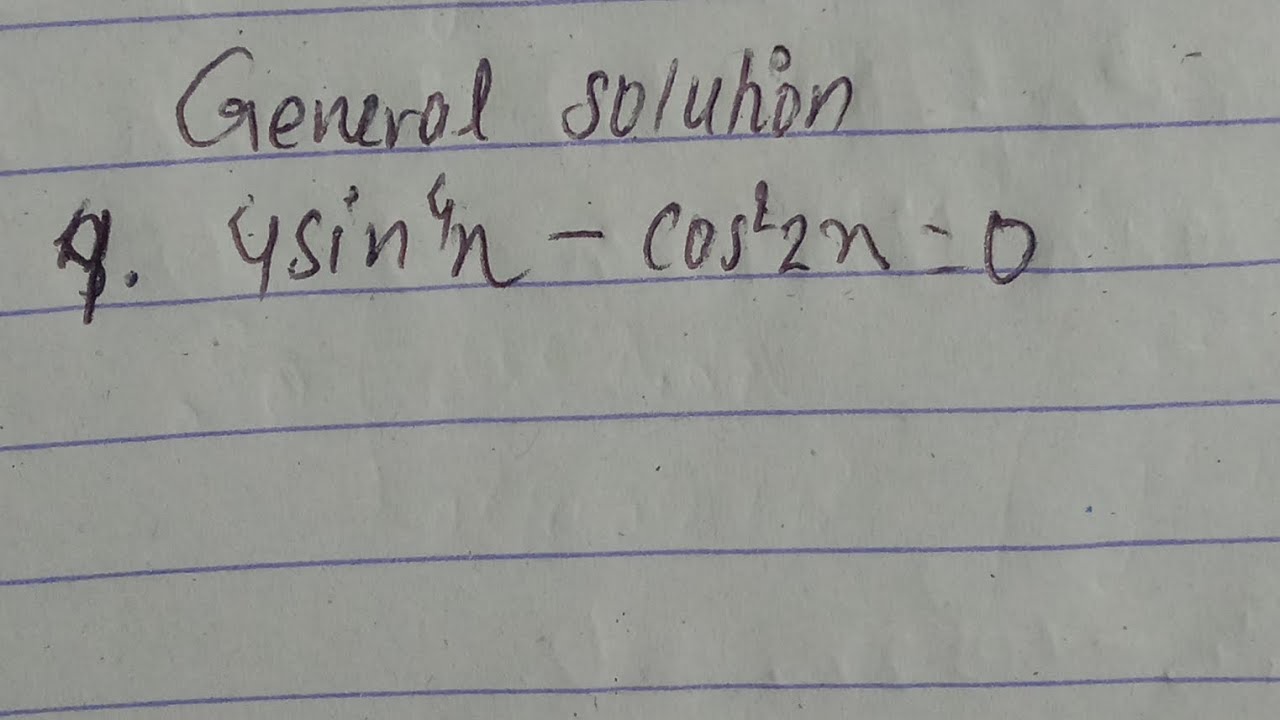 General solution
Q. 4sin⁴x - cos²2x = 0